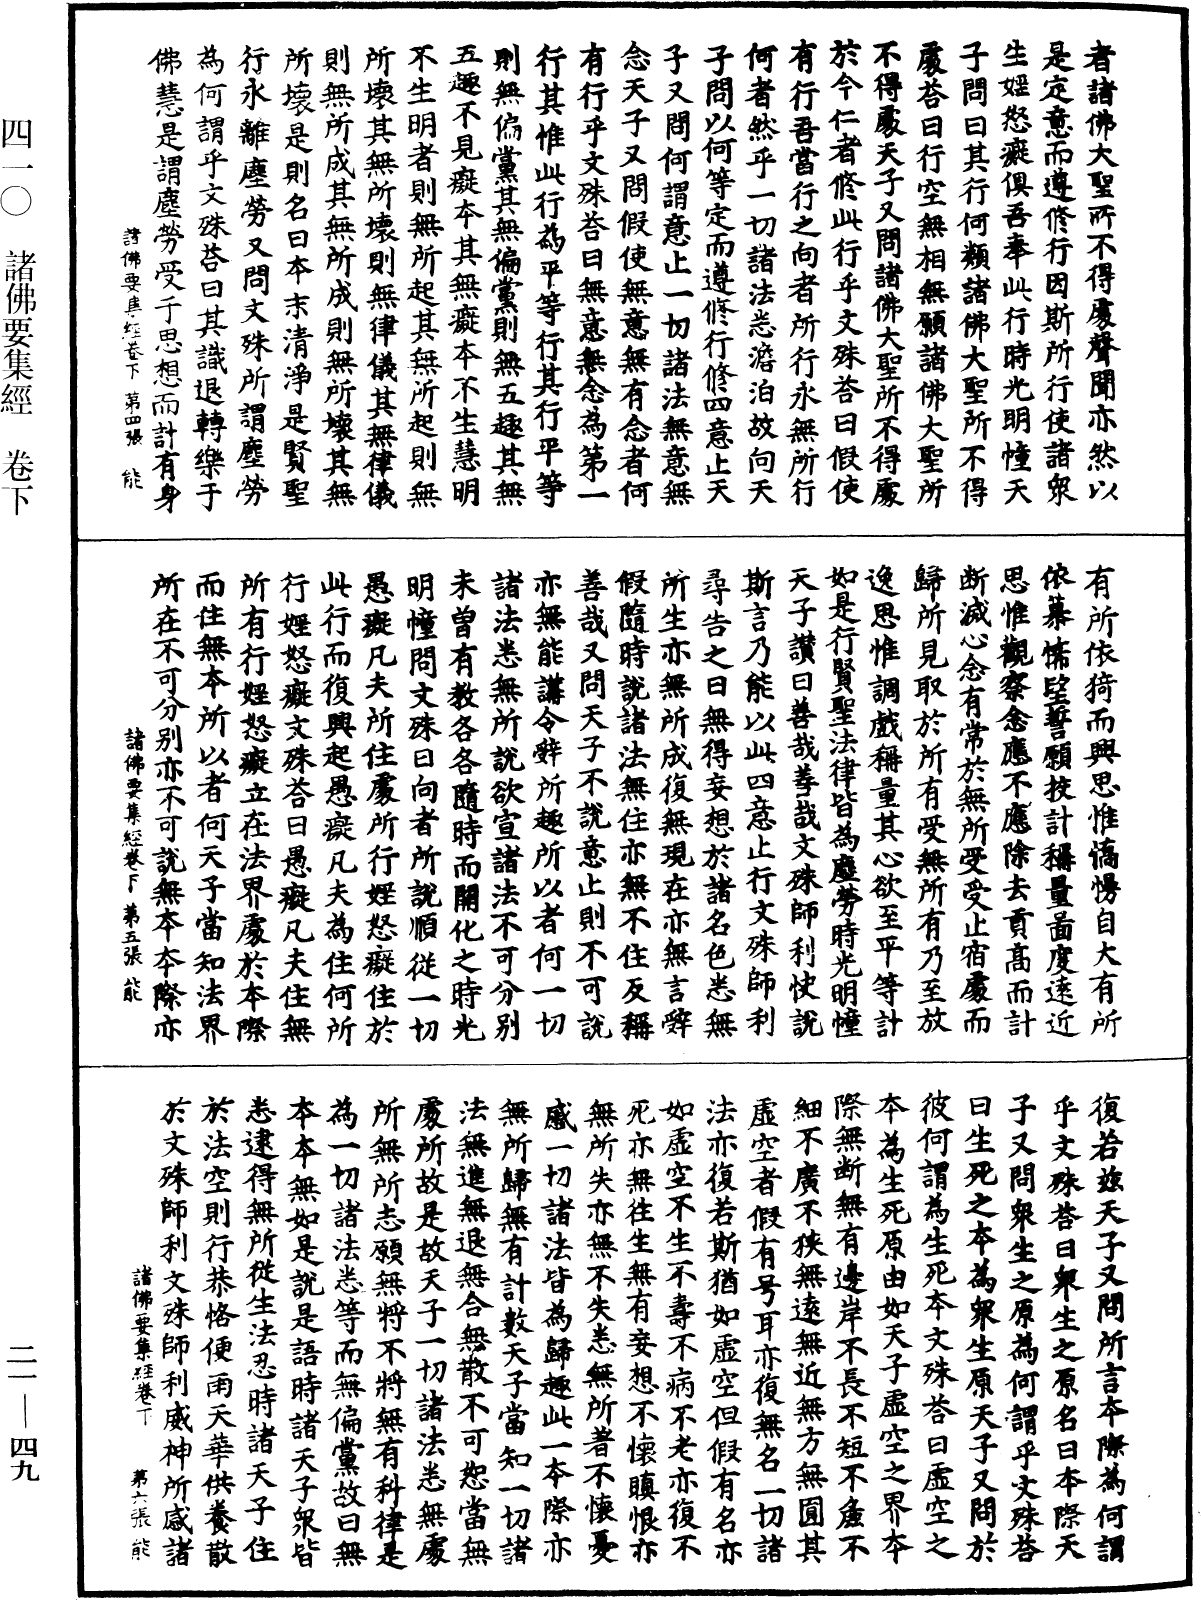 四一〇　諸佛要集經　卷下
二一—四九
者諸佛大聖所不得處聲聞亦然以
是定意而遵修行因斯所行使諸衆
生婬怒癡俱吾奉此行時光明幢天
子問曰其行何類諸佛大聖所不得
處荅曰行空無相無願諸佛大聖所
不得處天子又問諸佛大聖所不得處
於今仁者修此行乎文殊荅曰假使
有行吾當行之向者所行永無所行
何者然乎一切諸法悉澹泊故向天
子問以何等定而遵修行修四意止天
子又問何謂意止一切諸法無意無
念天子又問假使無意無有念者何
有行乎文殊荅曰無意無念為第一
行其惟此行為平等行其行平等
則無偏黨其無偏黨則無五趣其無
五趣不見癡本其無癡本不生慧明
不生明者則無所起其無所起則無
所壞其無所壞則無律儀其無律儀
則無所成其無所成則無所壞其無
所壞是則名曰本末清淨是賢聖
行永離塵勞又問文殊所謂塵勞
為何謂乎文殊荅曰其識退轉樂于
佛慧是謂塵勞受于思想而計有身
諸佛要集經卷下　第四張　能
有所依猗而興思惟憍慢自大有所
依慕悕望誓願挍計稱量啚度遠近
思惟觀察念應不應除去貢高而計
斷滅心念有常於無所受受止宿處而
歸所見取於所有受無所有乃至放
逸思惟調戲稱量其心欲至平等計
如是行賢聖法律皆為塵勞時光明幢
天子讚曰善哉善哉文殊師利快說
斯言乃能以此四意止行文殊師利
尋告之曰無得妄想於諸名色悉無
所生亦無所成復無現在亦無言辝
假隨時說諸法無住亦無不住反稱
善哉又問天子不說意止則不可說
亦無能講令辝所趣所以者何一切
諸法悉無所說欲宣諸法不可分別
未曾有教各各隨時而開化之時光
明幢問文殊曰向者所說順從一切
愚癡凡夫所住處所行婬怒癡住於
此行而復興起愚癡凡夫為住何所
行婬怒癡文殊荅曰愚癡凡夫住無
所有行婬怒癡立在法界處於本際
而住無本所以者何天子當知法界
所在不可分別亦不可說無本本際亦
諸佛要集經卷下　第五張　能
復若兹天子又問所言本際為何謂
乎文殊荅曰衆生之原名曰本際天
子又問衆生之原為何謂乎文殊荅
曰生死之本為衆生原天子又問於
彼何謂為生死本文殊荅曰虛空之
本為生死原由如天子虛空之界本
際無斷無有邊岸不長不短不麁不
細不廣不狹無遠無近無方無圓其
虛空者假有号耳亦復無名一切諸
法亦復若斯猶如虛空但假有名亦
如虛空不生不壽不病不老亦復不
死亦無往生無有妄想不懷瞋恨亦
無所失亦無不失悉無所著不懷憂
慼一切諸法皆為歸趣此一本際亦
無所歸無有計數天子當知一切諸
法無進無退無合無散不可恕當無
處所故是故天子一切諸法悉無處
所無所志願無將不將無有科律是
為一切諸法悉等而無偏黨故曰無
本本無如是說是語時諸天子衆皆
悉逮得無所從生法忍時諸天子住
於法空則行恭恪便雨天華供養散
於文殊師利文殊師利威神所感諸
諸佛要集經卷下　第六張　能